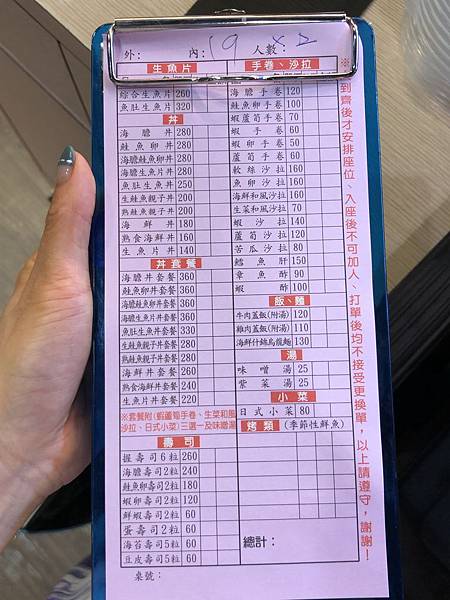 外: 內: 19 人數: x2
生魚片
綜合生魚片 260
魚肚生魚片 320
丼
海膽丼 280
鮭魚卵丼 280
海膽鮭魚卵丼 280
海膽生魚片丼 280
魚肚生魚丼 250
生鮭魚親子丼 200
熟鮭魚親子丼 200
海鮮丼 180
熟食海鮮丼 160
生魚片丼 140
丼套餐
海膽丼套餐 360
鮭魚卵丼套餐 360
海膽鮭魚卵丼套餐 360
海膽生魚片丼套餐 360
魚肚生魚丼套餐 330
生鮭魚親子丼套餐 280
熟鮭魚親子丼套餐 280
海鮮丼套餐 260
熟食海鮮丼套餐 240
生魚片丼套餐 220
※套餐附(蝦蘆筍手卷、生菜和風
沙拉、日式小菜)三選一及味噌湯
壽司
握壽司6粒 260
海膽壽司2粒 240
鮭魚卵壽司2粒 180
蝦卵壽司2粒 120
鮮蝦壽司2粒 60
蛋壽司2粒 60
海苔壽司5粒 60
豆皮壽司5粒 60
桌號:
手卷、沙拉
海膽手卷 120
鮭魚卵手卷 100
蝦蘆筍手卷 70
蝦手卷 60
蝦卵手卷 50
蘆筍手卷 60
軟絲沙拉 160
魚卵沙拉 160
海鮮和風沙拉 160
生菜和風沙拉 70
蝦沙拉 140
蘆筍沙拉 120
苦瓜沙拉 80
鱈魚肝 150
章魚酢 90
蝦酢 100
飯、麵
牛肉蓋飯(附湯) 120
雞肉蓋飯(附湯) 110
海鮮什錦烏龍麵 130
湯
味噌湯 25
紫菜湯 25
小菜
日式小菜 80
烤類 (季節性鮮魚)
總計:
※
到齊後才安排座位、入座後不可加人、打單後均不接受更換單,以上請遵守,謝謝!